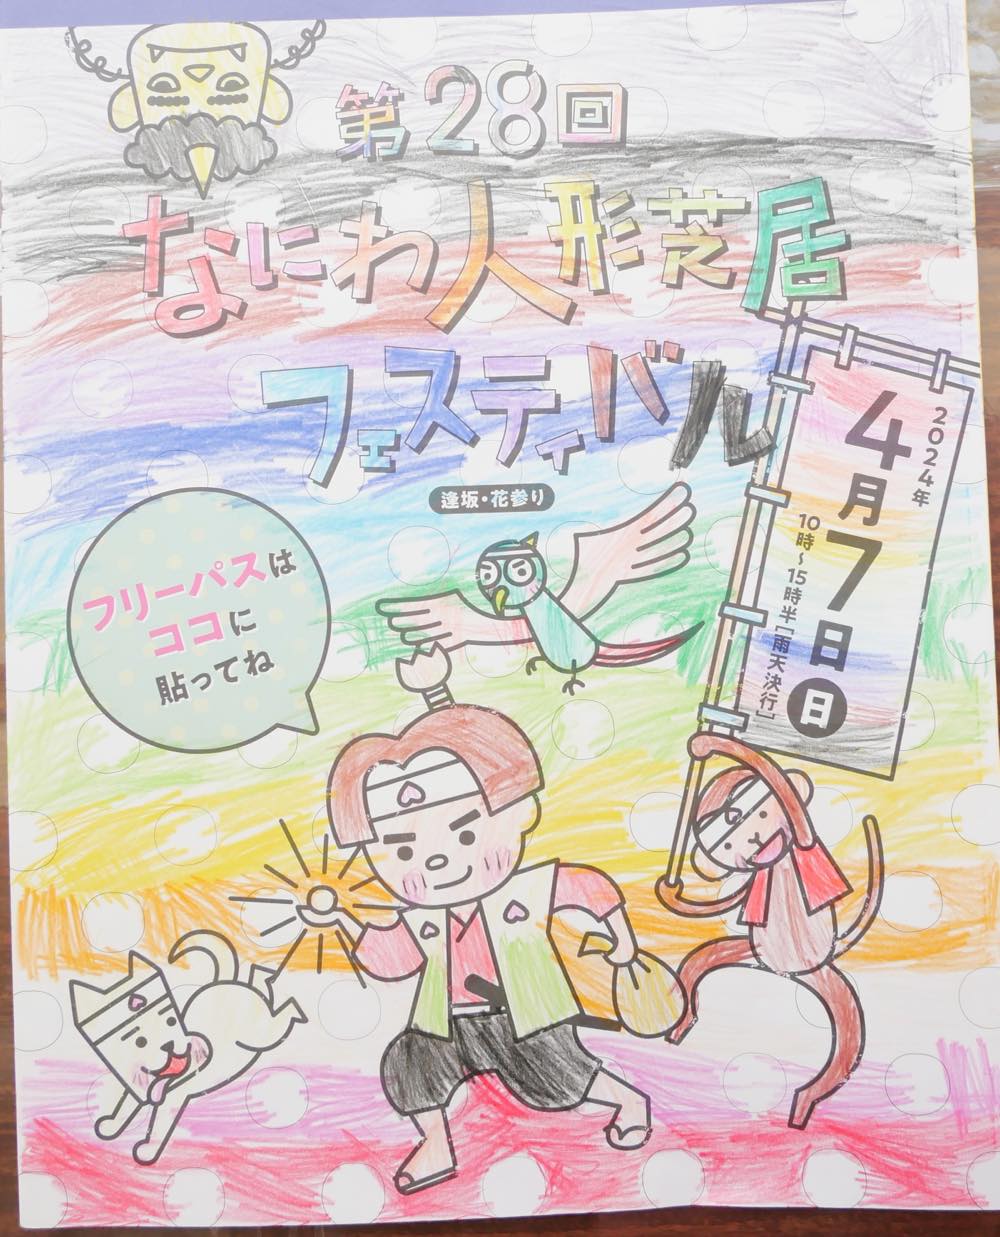 第28回
なにわ人形芝居
フェスティバル
逢坂・花参り
2024年
4月7日日
10時～15時半[雨天決行]
フリーパスは
ココに
貼ってね